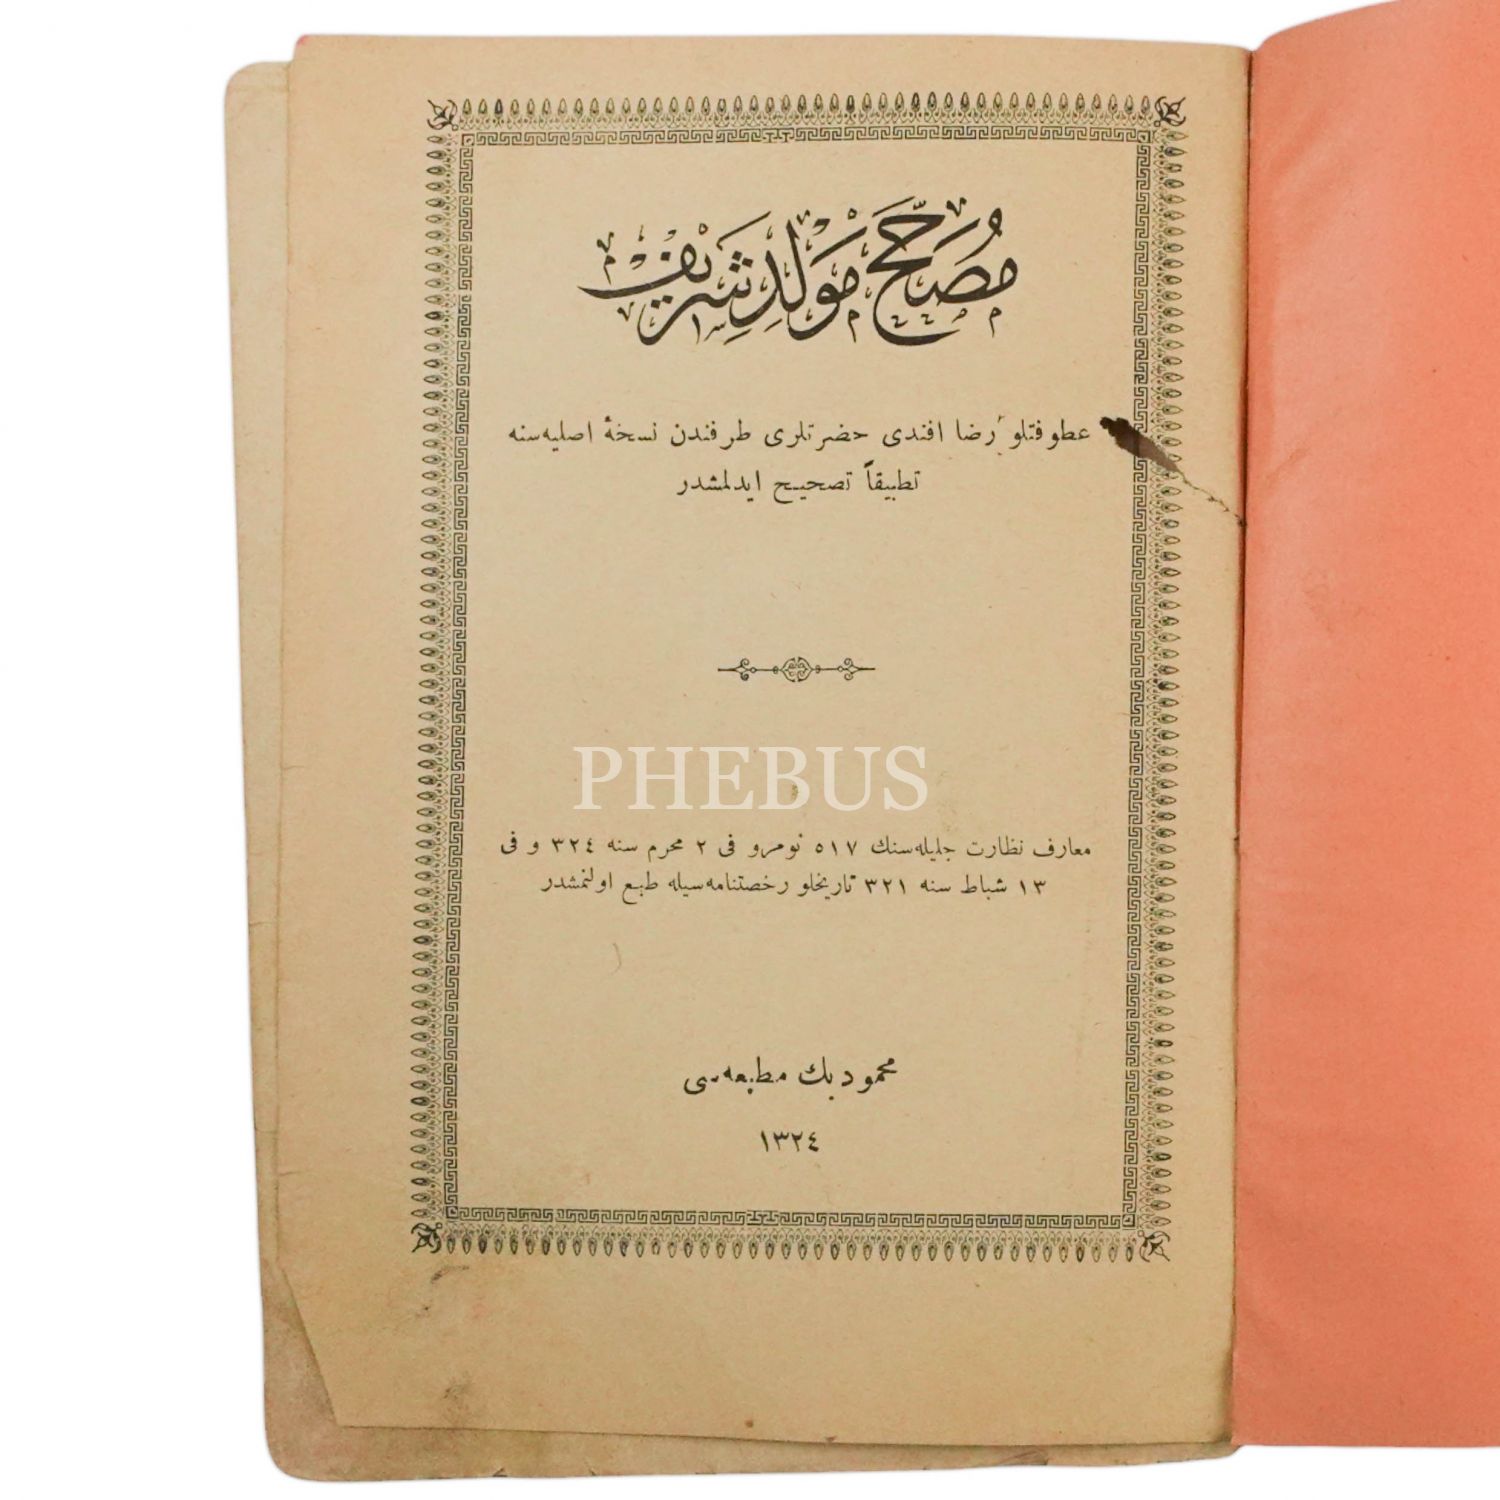 مُصَحَّح مَوْلِدِ شَرِيف
عطوفتلو رضا افندی حضرتلری طرفندن نسخهٔ اصلیه‌سنه
تطبیقاً تصحیح ایدلمشدر
PHEBUS
معارف نظارت جلیله‌سنك ٥١٧ نومرو فی ٢ محرم سنه ٣٢٤ و فی
١٣ شباط سنه ٣٢١ تاریخلو رخصتنامه‌سیله طبع اولنمشدر
محمود بك مطبعه‌سی
١٣٢٤